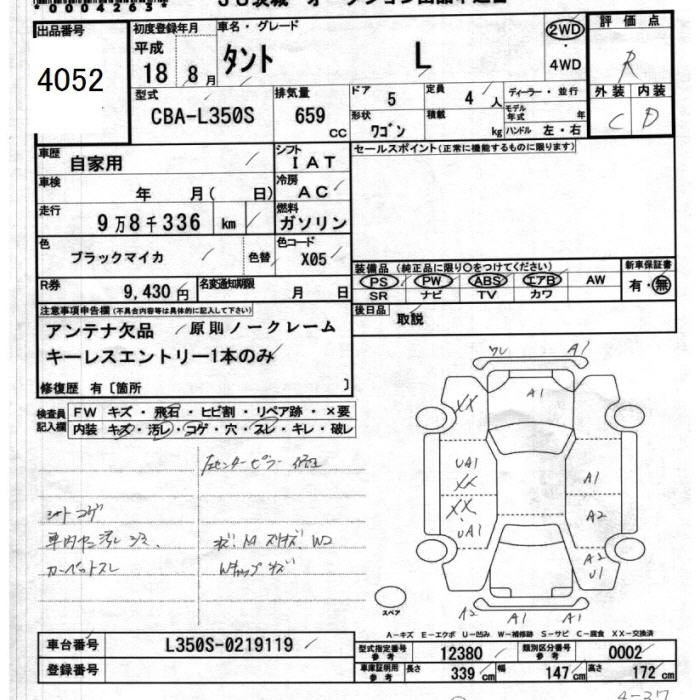 00004265
JU茨城 オークション出品申込書
出品番号
4052
初度登録年月
平成
18 8 月
車名・グレード
タント L
2WD
・
4WD
評価点
R
外装 内装
C D
型式
CBA-L350S
排気量
659 CC
ドア
5
定員
4 人
形状
ワゴン
積載
kg
ディーラー・並行
モデル年式 年
ハンドル 左・右
車歴
自家用
シフト
IAT
セールスポイント(正常に機能するものに限ります)
車検
年 月( 日)
冷房
AC
走行
9万8千336 km
燃料
ガソリン
色
ブラックマイカ
色替
色コード
X05
装備品 (純正品に限り○をつけてください)
PS PW ABS エアB AW
SR ナビ TV カワ
新車保証書
有・無
R券
9,430円
名変通知期限
月 日
後日品
取説
注意事項申告欄(不具合内容等は具体的に記入して下さい)
アンテナ欠品 原則ノークレーム
キーレスエントリー1本のみ
修復歴 有〔箇所 〕
検査員
記入欄
FW キズ・飛石・ヒビ割・リペア跡・×要
内装 キズ・汚レ・コゲ・穴・スレ・キレ・破レ
左センターピラー
シートコゲ
車内ヤニ汚レ シミ
カーペットスレ
Wキャップキズ
ワレ A1
A1
XX
UA1
XX
XX
UA1
A1
A2
A2
U1
A2 A1 A1
スペア
A-キズ E-エクボ U-凹み W-補修跡 S-サビ C-腐食 XX-交換済
車台番号
L350S-0219119
登録番号
型式指定番号
参考
12380
類別区分番号
参考
0002
車庫証明用
参考
長さ 339 cm 幅 147 cm 高さ 172 cm
4-37